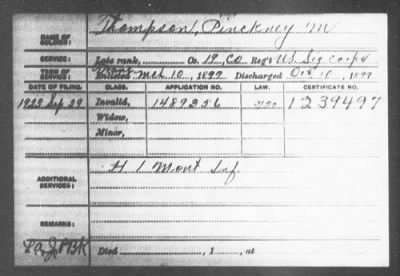 NAME OF SOLDIER: Thompson, Pinckney M
SERVICE: Late rank, Co. 19, Co Reg't U.S. Sig Corps
TERM OF SERVICE: Enlisted Mch 10, 1899 Discharged Oct 10, 1899
DATE OF FILING. CLASS. APPLICATION NO. LAW. CERTIFICATE NO.
1922 Sep 29 Invalid, 1489256 1239497
Widow,
Minor,
ADDITIONAL SERVICES: H 1 Mont Inf.
REMARKS:
Died , 1 , at